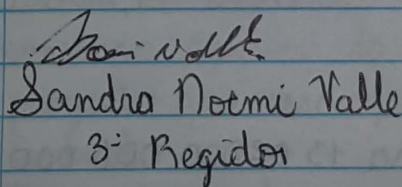 Sandra Noemi Valle
3º Regidor